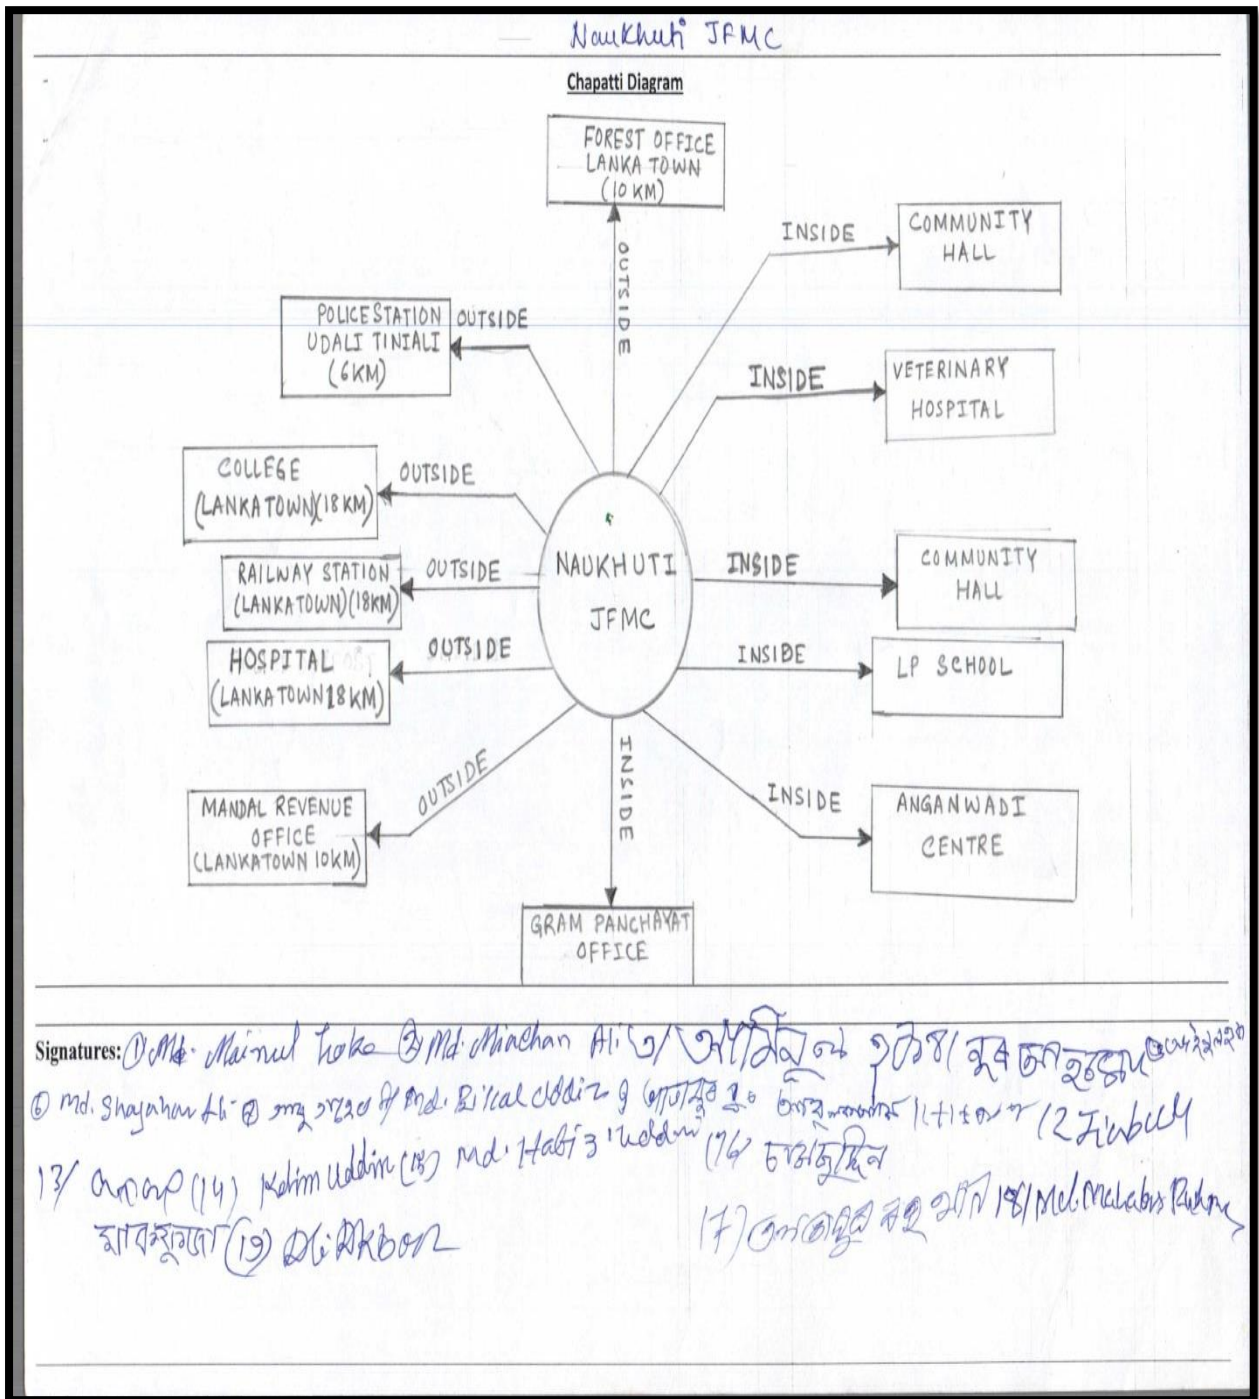 Naukhuti JFMC
Chapatti Diagram
FOREST OFFICE
LANKA TOWN
(10 KM)
OUTSIDE
INSIDE
COMMUNITY
HALL
POLICE STATION
UDALI TINIALI
(6KM)
OUTSIDE
INSIDE
VETERINARY
HOSPITAL
COLLEGE
(LANKATOWN)(18KM)
OUTSIDE
NAUKHUTI
JFMC
INSIDE
COMMUNITY
HALL
RAILWAY STATION
(LANKATOWN)(18KM)
OUTSIDE
HOSPITAL
(LANKATOWN 18KM)
OUTSIDE
INSIDE
LP SCHOOL
MANDAL REVENUE
OFFICE
(LANKATOWN 10KM)
OUTSIDE
INSIDE
INSIDE
ANGANWADI
CENTRE
GRAM PANCHAYAT
OFFICE
Signatures: ① Md. Mainul Hoke ② Md. Miachan Ali 3/
⑥ Md. Shajahan Ali Md. Billal Uddin
13/ (14) Karim Uddin (15) Md. (16)
17) 18) Md. Mahabur Rahman
(19) Ali Akbor